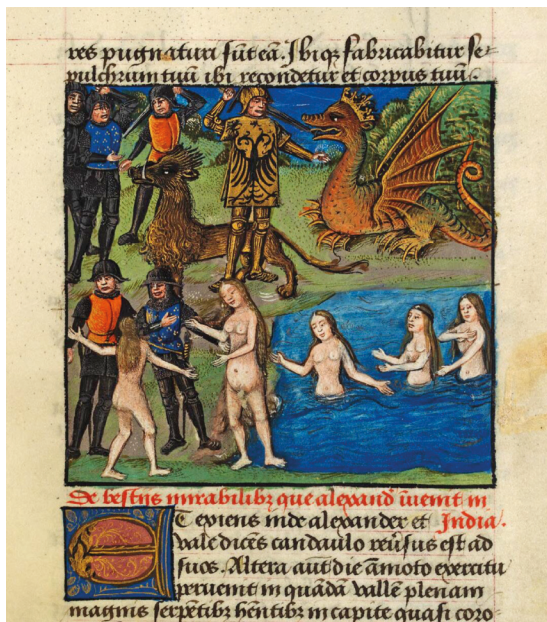 res pugnaturi sūt eā. Ibiq; fabricabitur se-
pulchrum tuū ibi recondetur et corpus tuū.
De bestiis mirabilibꝫ que alexand̄ īuenit in
ET exiens inde alexander et India.
vale dicēs candaulo reūsus est ad
suos. Altera aūt die āmoto exercitu
peruenit in quādā vallē plenam
magnis serpētibꝫ hēntibꝫ in capite quasi coro